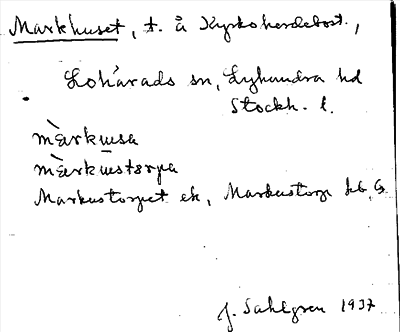 Markhuset, t. å Kyrkoherdebost.,
Lohärads sn, Lyhundra hd
Stockh. l.
màrkusa
màrkustɷrpa
Markustorpet ek, Markustorp hb, G.
J. Sahlgren 1937